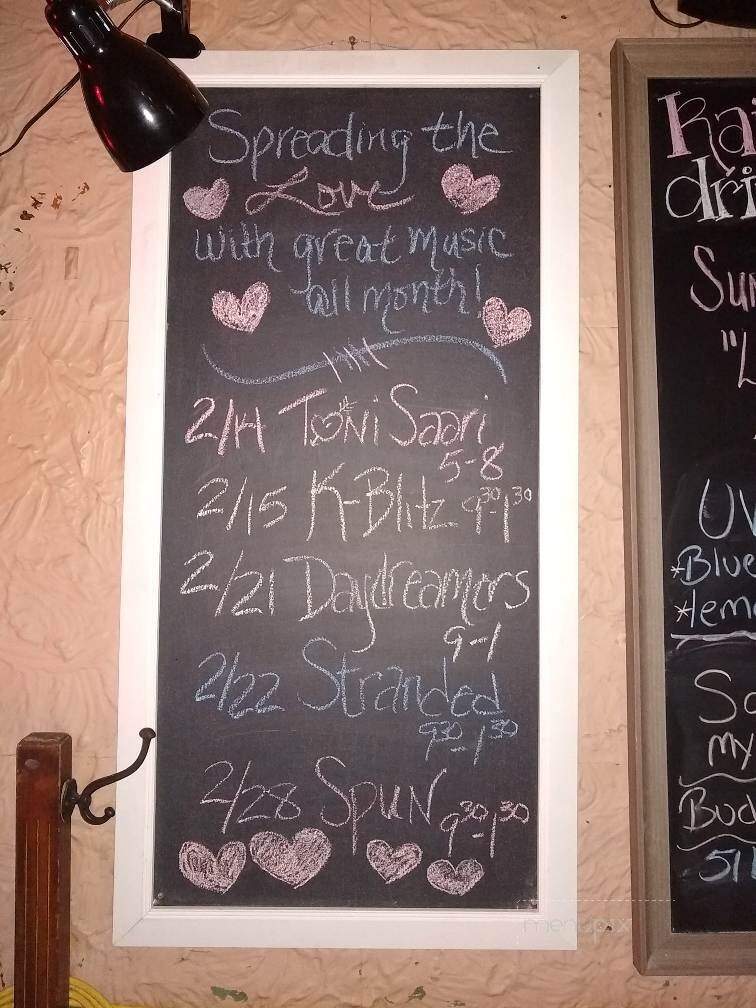 Spreading the
Love
with great music
all month!
2/14 Toni Saari
5-8
2/15 K-Blitz 9:30-1:30
2/21 Daydreamers
9-1
2/22 Stranded
9:30-1:30
2/28 Spun 9:30-1:30
Ra
dri
Su
"L
UV
*Blue
*lem
So
my
Bud
menupix